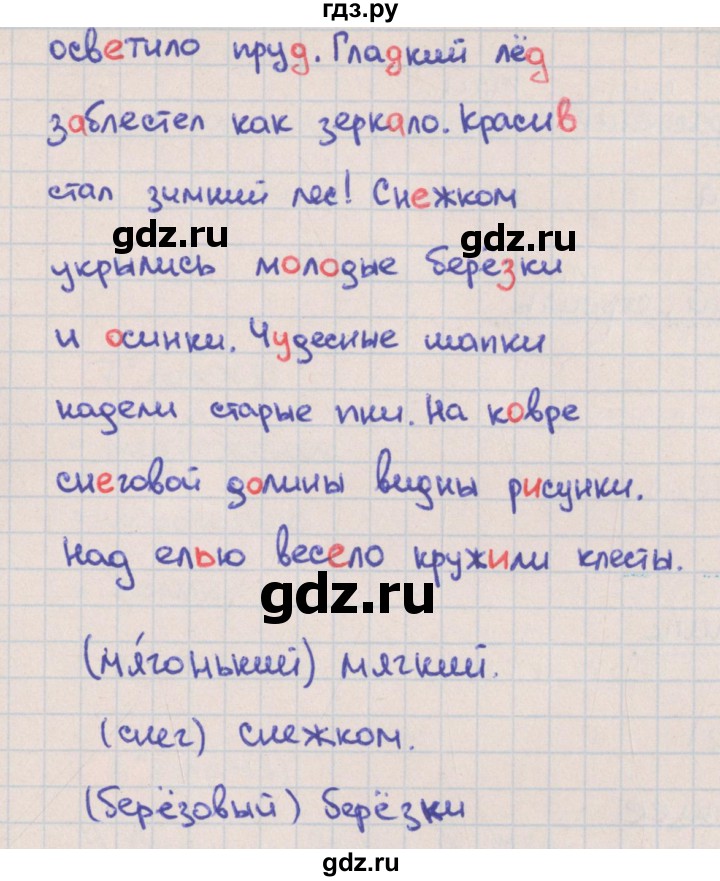 гдз.ру
осветило пруд. Гладкий лёд
заблестел как зеркало. Красив
стал зимний лес! Снежком
gdz.ru gdz.ru
укрылись молодые березки
и осинки. Чудесные шапки
надели старые пни. На ковре
снеговой долины видны рисунки.
Над елью весело кружили клесты.
gdz.ru
(мя́гонький) мягкий.
(снег) снежком.
(берёзовый) берёзки
gdz.ru